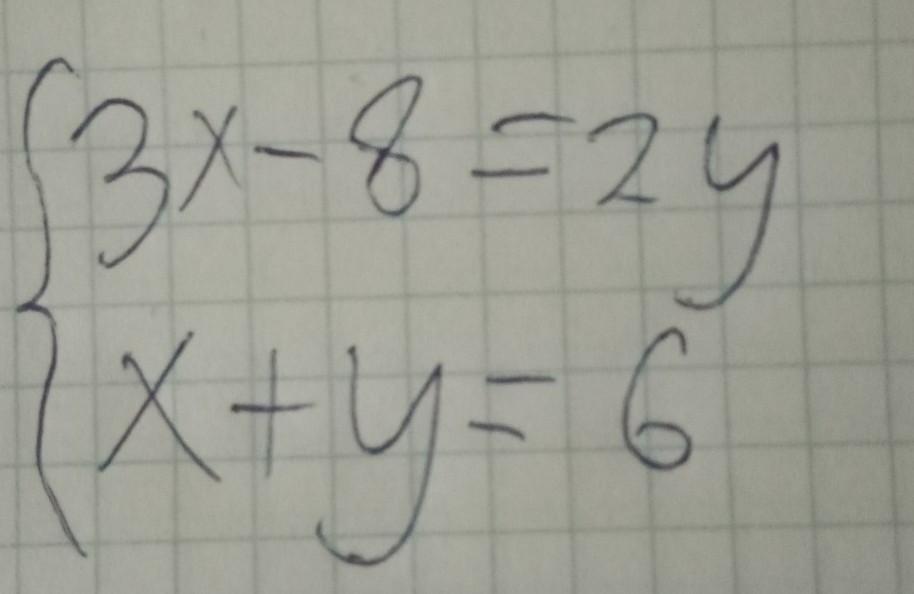 3x - 8 = 2y
x + y = 6